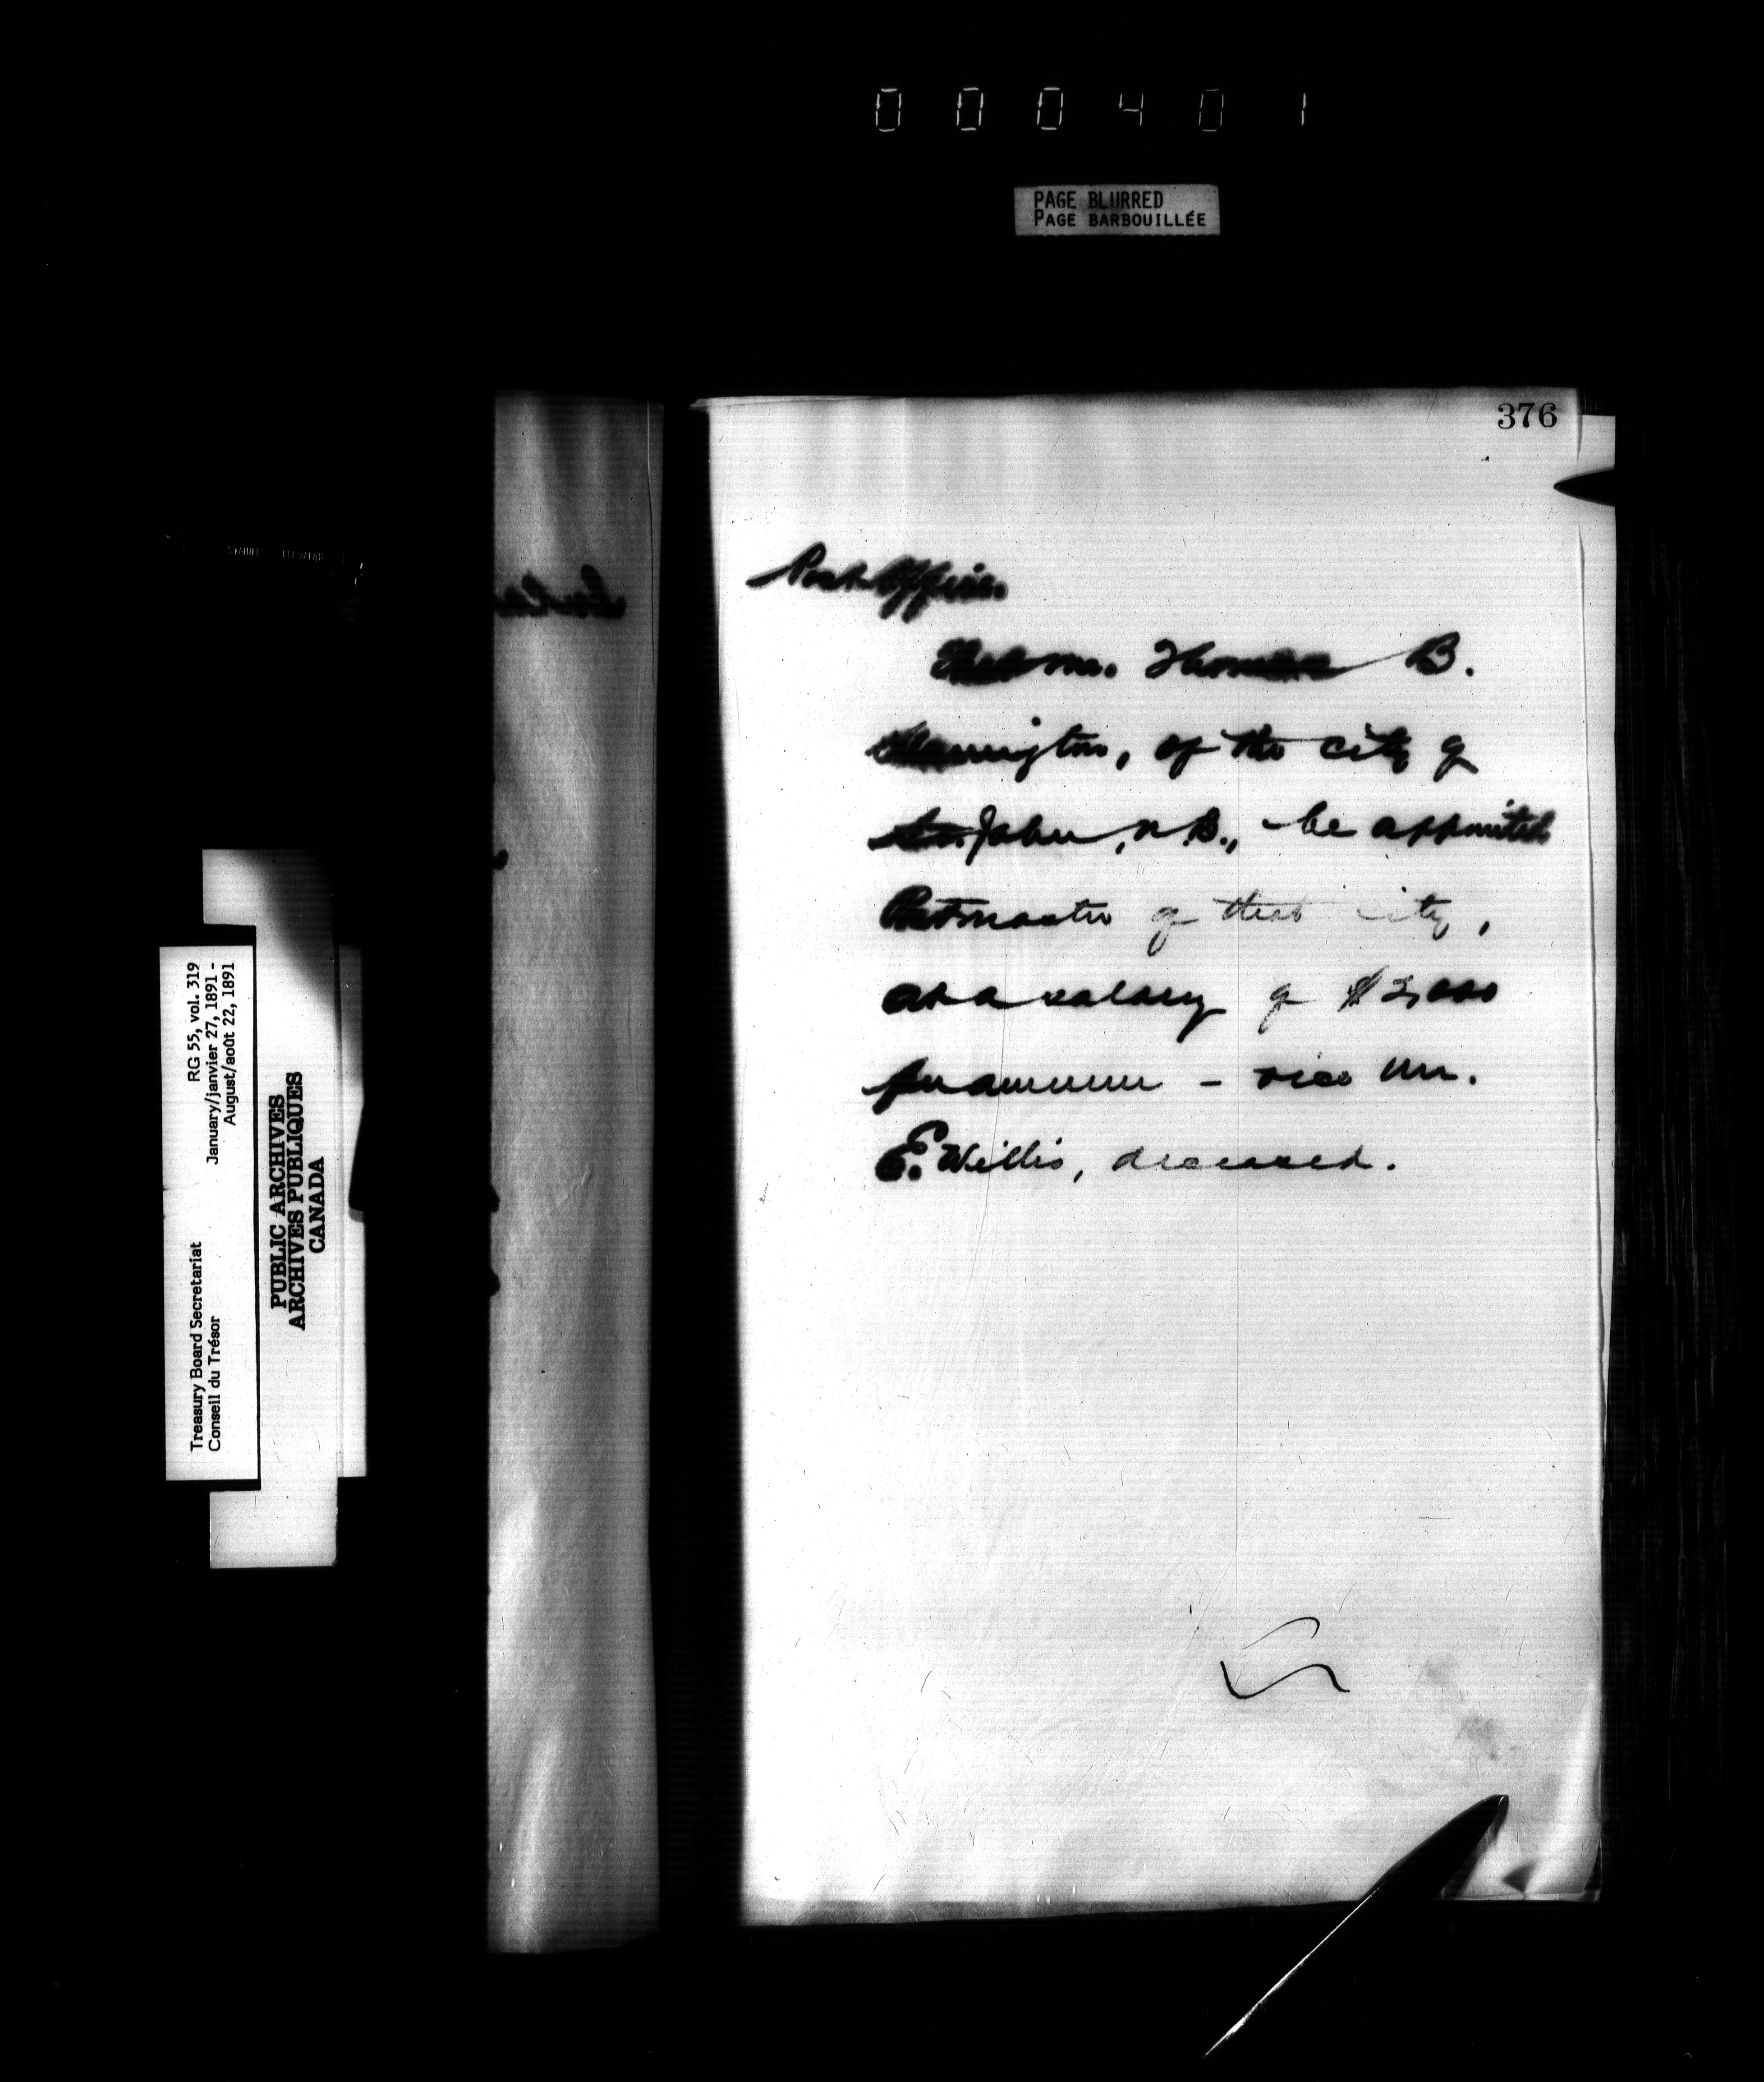 000401
PAGE BLURRED
PAGE BARBOUILLÉE
376
Post Office.
That Mr. Thomas B.
Hannington, of the city of
St. John, N.B., be appointed
Postmaster of that city,
at a salary of $2,000
per annum – vice Mr.
E. Willis, deceased.
RG 55, vol. 319
January/janvier 27, 1891 -
August/août 22, 1891
Treasury Board Secretariat
Conseil du Trésor
PUBLIC ARCHIVES
ARCHIVES PUBLIQUES
CANADA